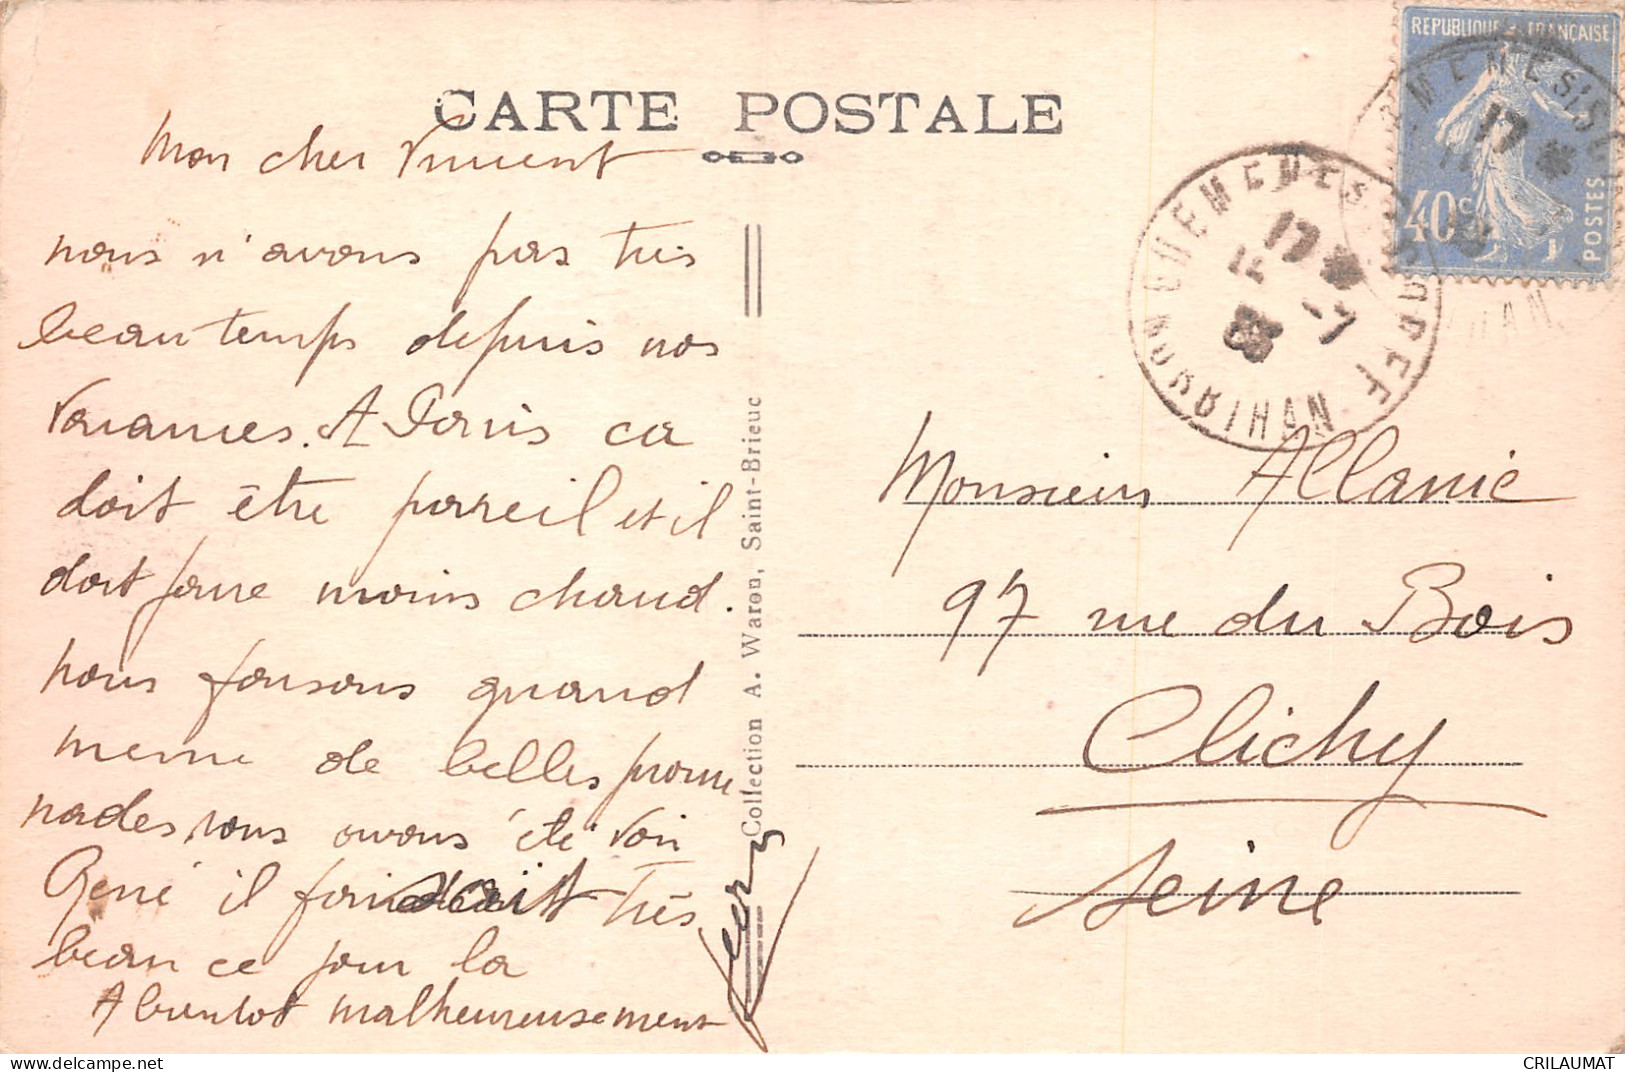 CARTE POSTALE
Mon cher Vincent
nous n'avons pas très
beau temps depuis nos
vacances. A Paris ca
doit être pareil et il
doit faire moins chaud.
nous faisons quand
meme de belles prome
nades, nous avons été voir
René il faisait très
beau ce jour la
A bientot malheureusement
Collection A. Waron, Saint-Brieuc
REPUBLIQUE FRANÇAISE
40c
POSTES
17 *
-7
MORBIHAN
Monsieur Allanic
97 rue du Bois
Clichy
Seine
https://www.delcampe.net
CRILAUMAT